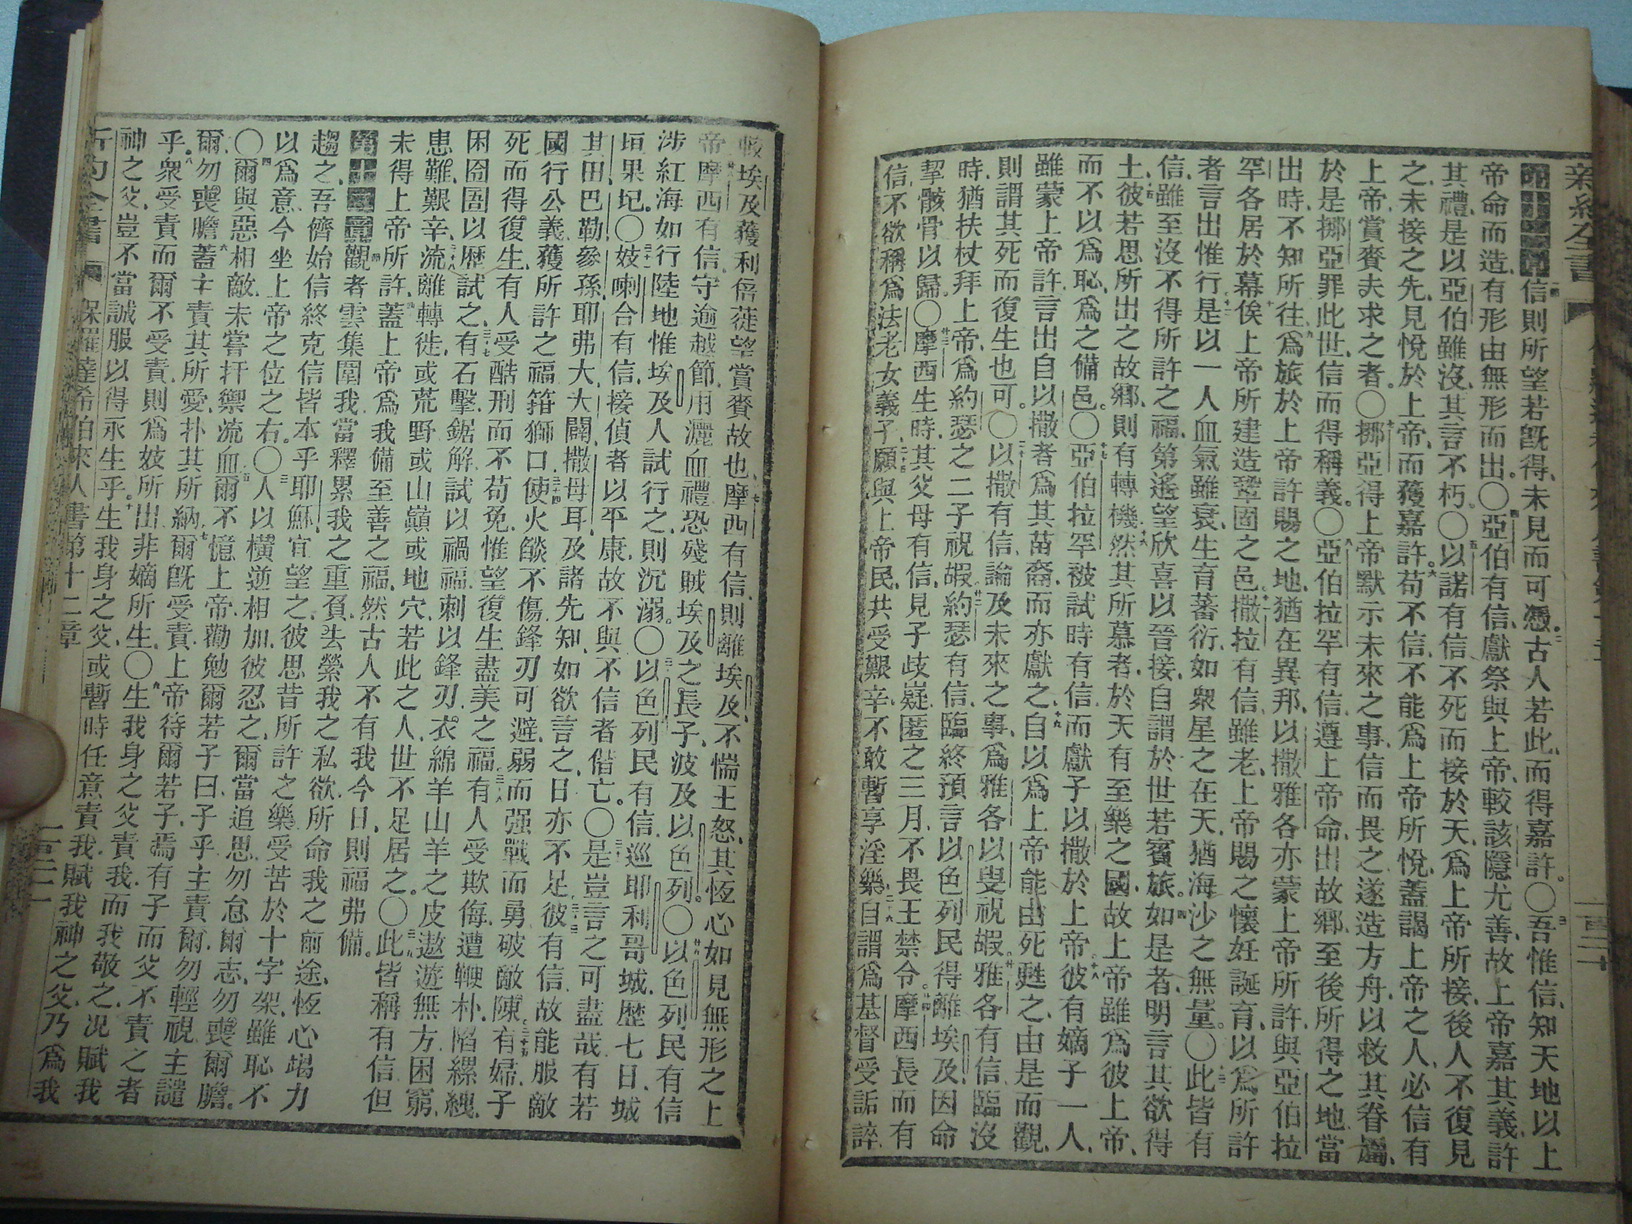 新約全書
第十一章信則所望若旣得、未見而可憑、古人若此、而得嘉許。○吾惟信、知天地以上
帝命而造、有形由無形而出。○亞伯有信、獻祭與上帝、較該隱尤善、故上帝嘉其義、許
其禮、是以亞伯雖沒、其言不朽。○以諾有信、不死而接於天、爲上帝所接、後人不復見
之、未接之先、見悅於上帝、而獲嘉許、苟不信、不能爲上帝所悅、蓋謁上帝之人、必信有
上帝、賞賚夫求之者。○挪亞得上帝默示未來之事、信而畏之、遂造方舟、以救其眷屬、
於是挪亞罪此世、信而得稱義。○亞伯拉罕有信、遵上帝命、出故鄉、至後所得之地、當
出時、不知所往、爲旅於上帝許賜之地、猶在異邦、以撒雅各亦蒙上帝所許、與亞伯拉
罕各居於幕、俟上帝所建造鞏固之邑、撒拉有信、雖老、上帝賜之懷妊誕育、以爲所許
者言出惟行、是以一人血氣雖衰、生育蕃衍、如衆星之在天、猶海沙之無量。○此皆有
信、雖至沒不得所許之福、第遙望欣喜以晉接、自謂於世若賓旅、如是者、明言其欲得
土、彼若思所出之故鄉、則有轉機、然其所慕者、於天有至樂之國、故上帝雖爲彼上帝、
而不以爲恥、爲之備邑。○亞伯拉罕被試時有信、而獻子以撒於上帝、彼有嫡子一人、
雖蒙上帝許、言出自以撒者、爲其苗裔、而亦獻之、自以爲上帝能由死甦之、由是而觀、
則謂其死而復生也可。○以撒有信、論及未來之事、爲雅各以叟祝嘏、雅各有信、臨沒
時、猶扶杖拜上帝、爲約瑟之二子祝嘏、約瑟有信、臨終預言以色列民得離埃及、因命
挈骸骨以歸。○摩西生時、其父母有信、見子歧嶷、匿之三月、不畏王禁令。摩西長而有
信、不欲稱爲法老女義子、願與上帝民、共受艱辛、不敢暫享淫樂、自謂爲基督受詬誶、
較埃及獲利倍蓰、望賞賚故也、摩西有信、則離埃及、不惴王怒、其恆心如見無形之上
帝、摩西有信、守逾越節、用灑血禮、恐殘賊埃及之長子、波及以色列。○以色列民有信、
涉紅海如行陸地、惟埃及人試行之、則沉溺。○以色列民有信、巡耶利哥城、歷七日、城
垣果圮。○妓喇合有信、接偵者以平康、故不與不信者偕亡。○是豈言之可盡哉、有若
其田、巴勒、參孫、耶弗大、大闢、撒母耳、及諸先知、如欲言之、日亦不足、彼有信、故能服敵
國、行公義、獲所許之福、箝獅口、使火燄不傷、鋒刃可避、弱而强、戰而勇、破敵陳、有婦子
死而得復生、有人受酷刑而不苟免、惟望復生盡美之福、有人受欺侮、遭鞭朴、陷縲絏、
困囹圄以歷試之、有石擊、鋸解、試以禍福、刺以鋒刃。衣綿羊山羊之皮、遨遊無方、困窮、
患難、艱辛、流離轉徙、或荒野、或山巔、或地穴、若此之人、世不足居之。○此皆稱有信、但
未得上帝所許、蓋上帝爲我備至善之福、然古人不有我今日、則福弗備。
第十二章觀者雲集圍我、當釋累我之重負、去縈我之私欲、所命我之前途、恆心竭力
趨之、吾儕始信終克信、皆本乎耶穌、宜望之、彼思昔所許之樂、受苦於十字架、雖恥不
以爲意、今坐上帝之位之右。○人以橫逆相加、彼忍之、爾當追思、勿怠爾志、勿喪爾膽。
○爾與惡相敵、未嘗扞禦流血、爾不憶上帝勸勉爾若子曰、子乎、主責爾、勿輕視、主譴
爾、勿喪膽、蓋主責其所愛、扑其所納、爾旣受責、上帝待爾若子、焉有子而父不責之者
乎、衆受責而爾不受責、則爲妓所出、非嫡所生。○生我身之父責我、而我敬之、况賦我
神之父、豈不當誠服以得永生乎、生我身之父、或暫時任意責我、賦我神之父、乃爲我
新約全書 保羅達希伯來人書第十二章 一百二十一